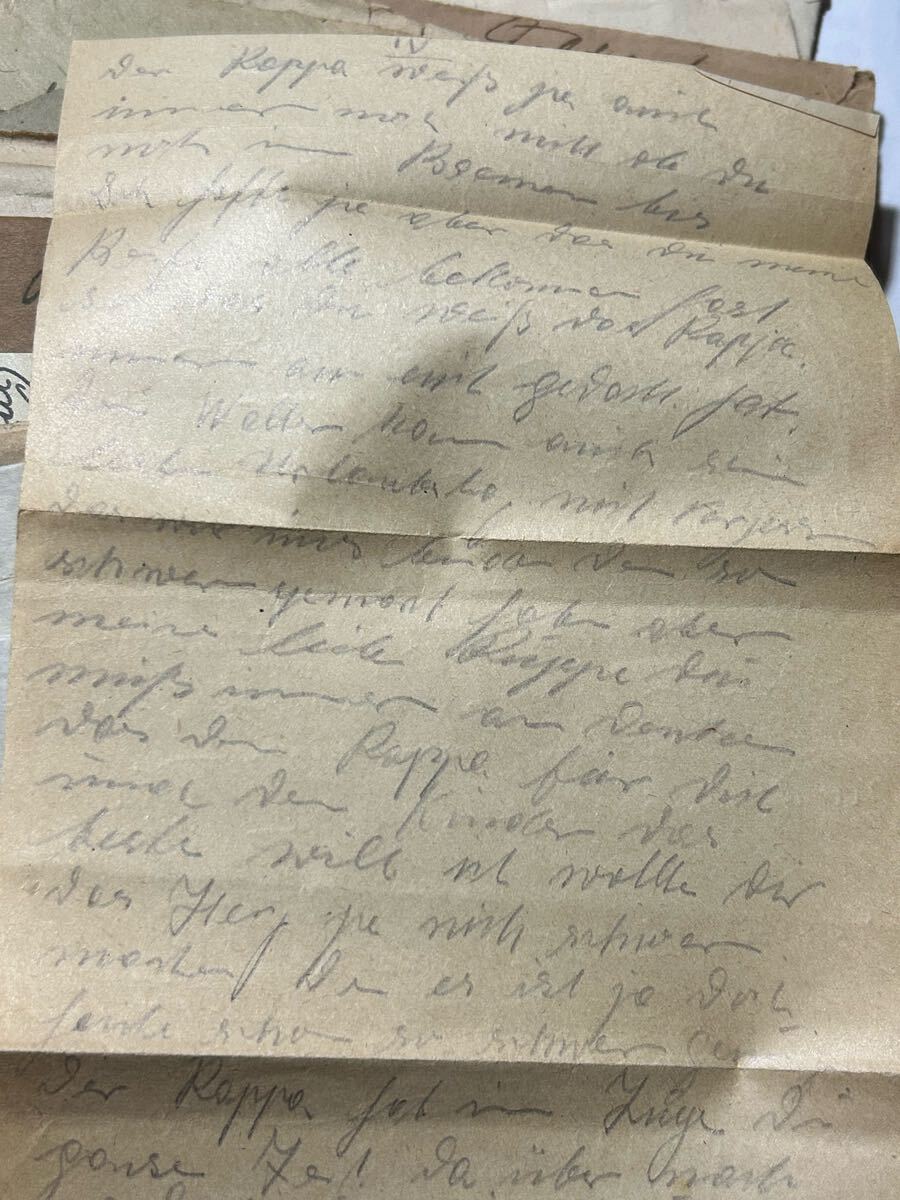 IV
der Pappa weiß ja auch
immer noch nicht ob du
noch in Bremen bis
Ich hoffe ja aber das du meine
Briefe alle bekommen hast
das du weiß das Pappa
immer an euch gedacht hat.
Walter kam auch sein
Urlauber nicht
das wir uns beide den so
schwer gemacht habe aber
meine liebe Puppe du
muß immer an denken
das dein Pappa für dich
und den Kinder das
beste will ich wollte dir
das Herz ja nich schwer
machen den es ist ja doch
heute schon so schwer
Der Pappa hat im Zuge die
ganse Zeit da über nach